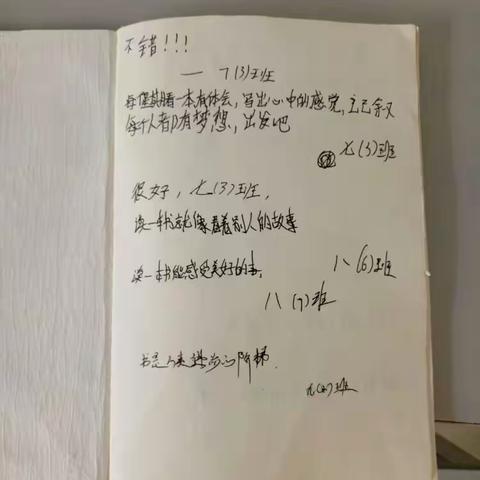 不错!!!
— 7(3)班
每星期看一本有体会,写出心中的感觉,
每个人都有梦想,出发吧
七(3)班
很好,七(3)班,
读一本书就像看着别人的故事
读一本书能感受美好的事,
八(6)班
八(7)班
书是人类进步的阶梯.
九(2)班